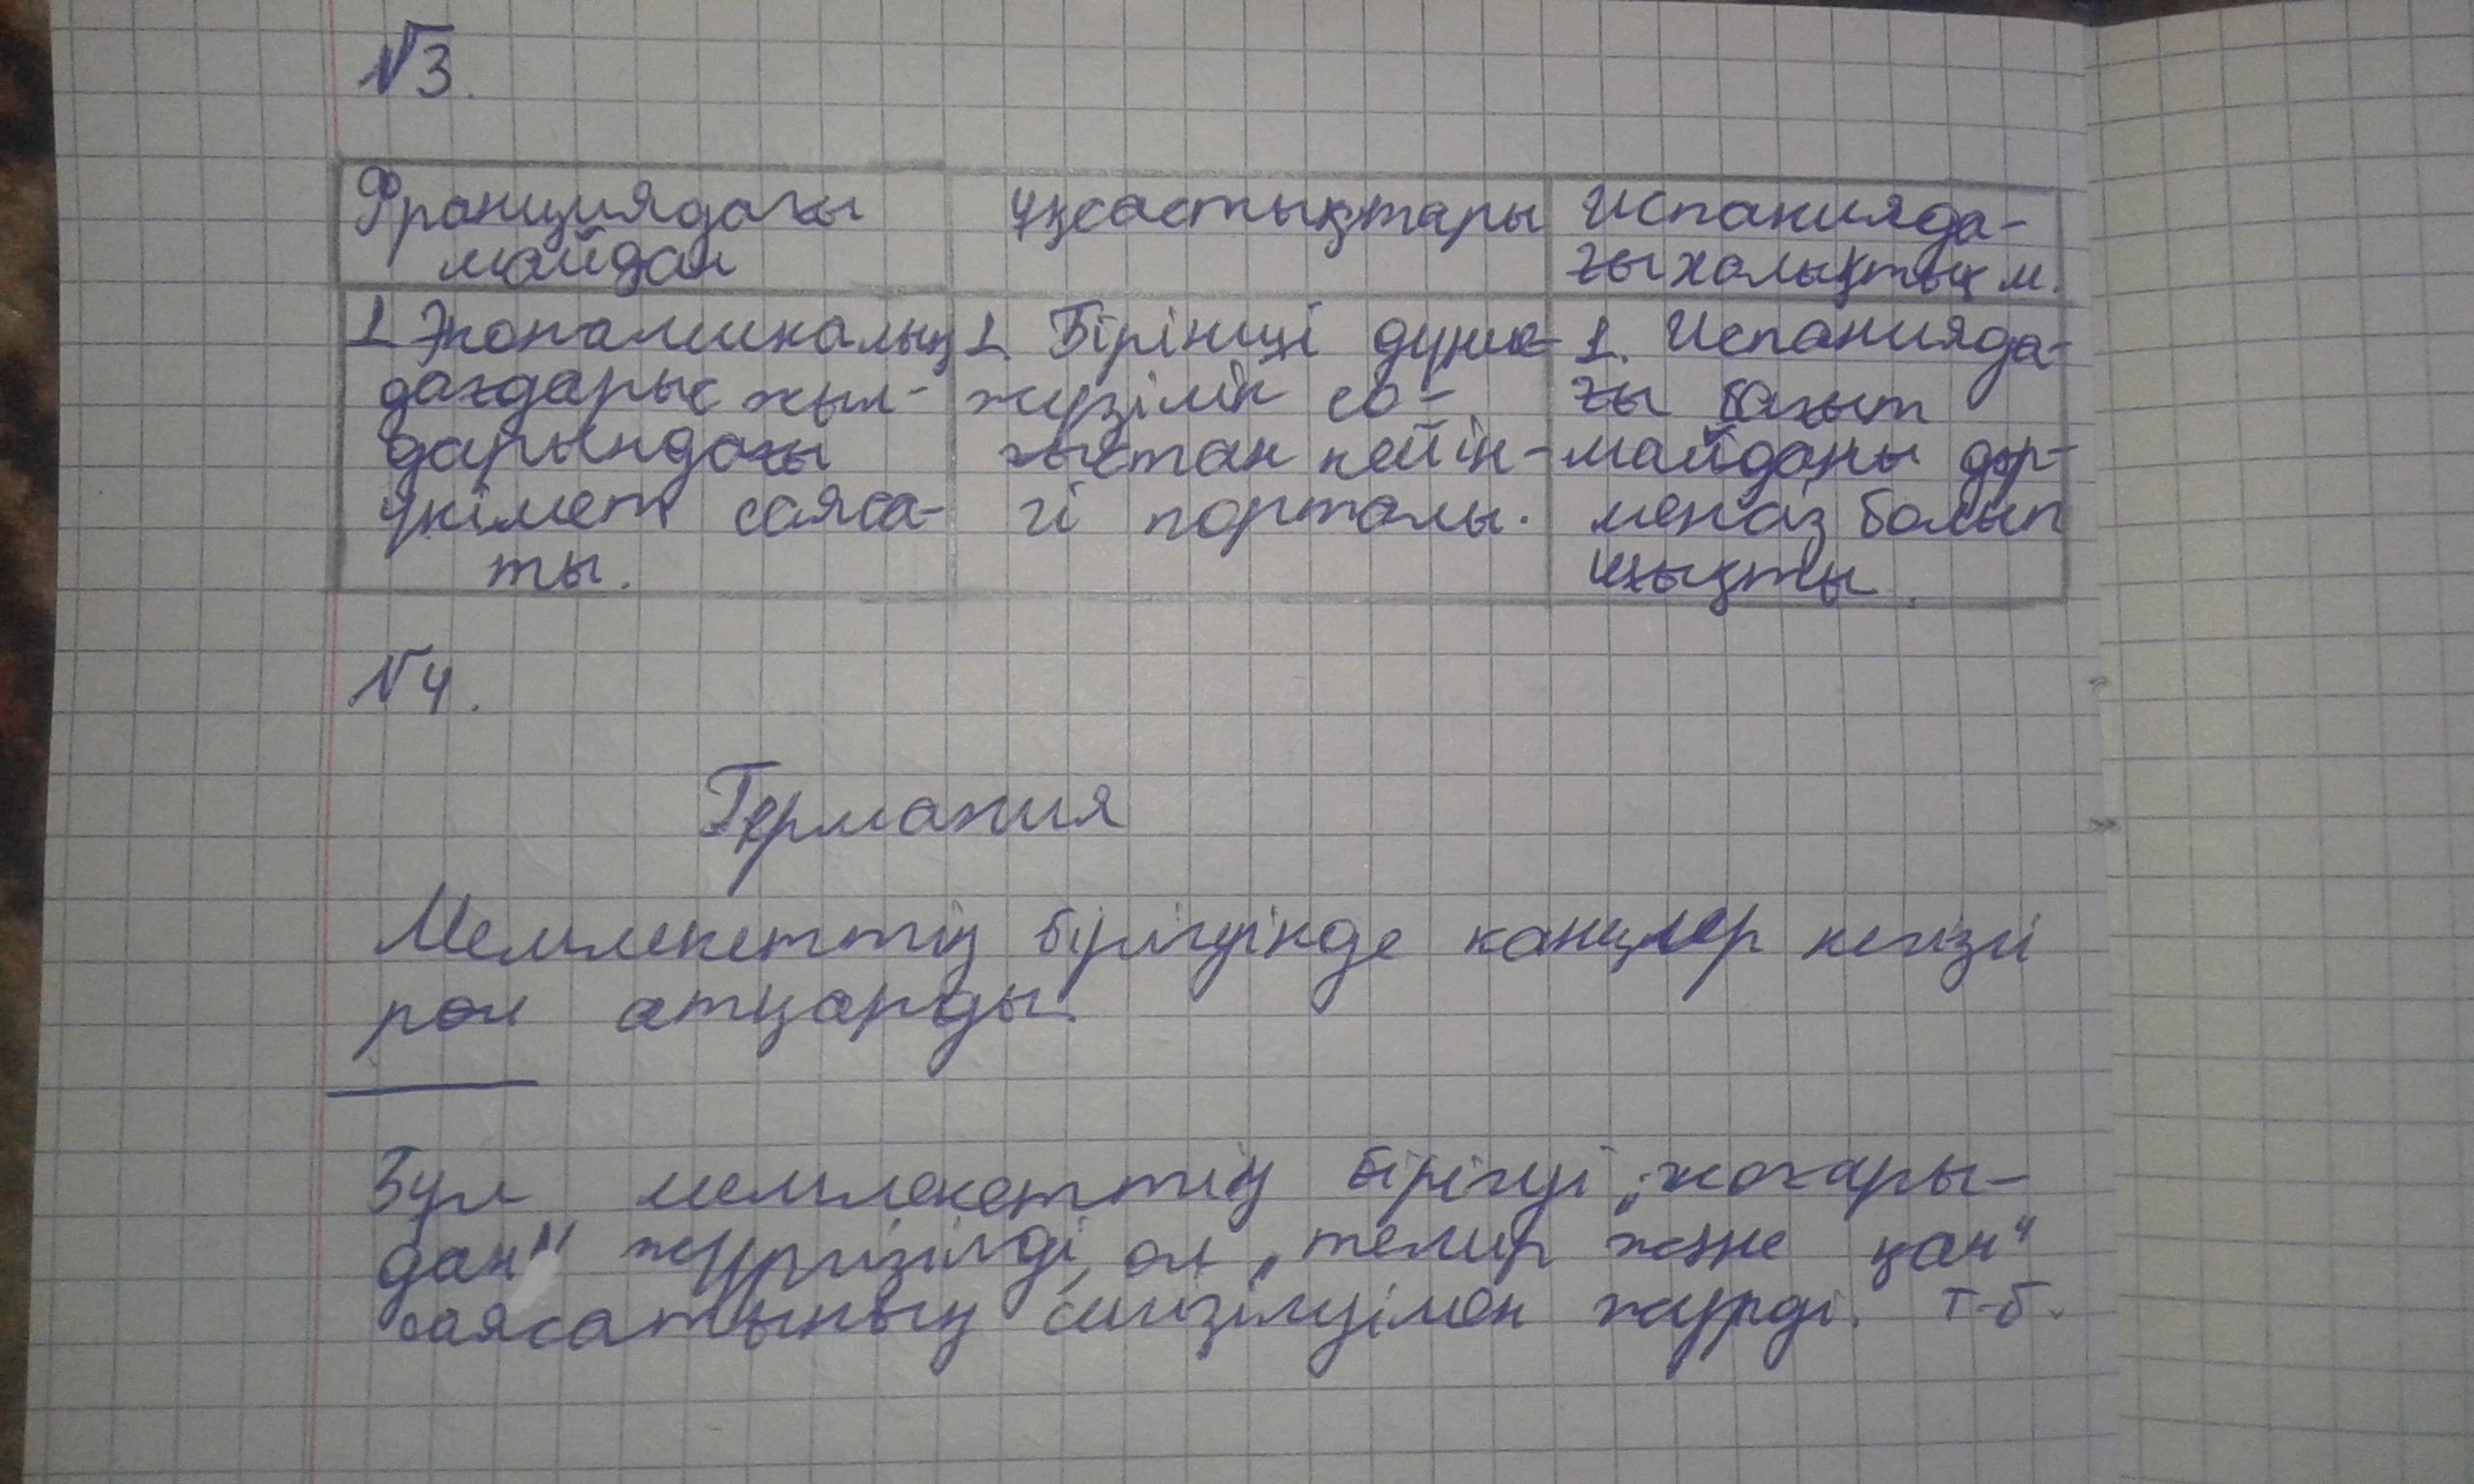 №3.
Франциядағы
майдан
ұқсастықтары
Испанияда-
ғы халықтық м.
1. Экономикалық
дағдарыс жыл-
дарындағы
үкімет саяса-
ты.
1. Бірінші дүние-
жүзілік со-
ғыстан кейін-
гі порталы.
1. Испанияда-
ғы бағыт
майданы дәр-
менсіз болып
шықты.
№4.
Германия
Мемлекеттің бірігуінде канцлер негізгі
рөл атқарды.
Бұл мемлекеттің бірігуі „жоғары-
дан" жүргізілді, ол „темир және қан"
саясатының енгізілуімен жүрді. т.б.